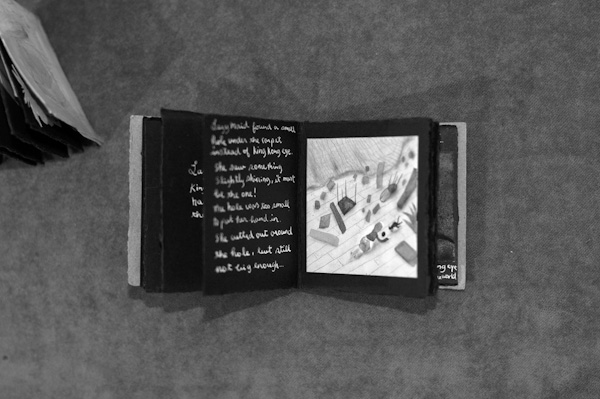 Lu
Kin
ha
sh
Lazy Maid found a small
hole under the carpet
instead of king kong eye.
She saw something
slightly shining, it must
be the one!
The hole was too small
to put her hand in.
She cutted out around
the hole, but still
not big enough...
ng eye
world